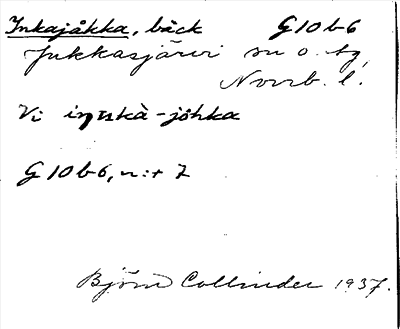 Inkajåkka, bäck G10b6
Jukkasjärvi sn o. tg,
Norrb. l.
Vi iŋːkà-johka
G10b6, n:r 7
Björn Collinder 1937.